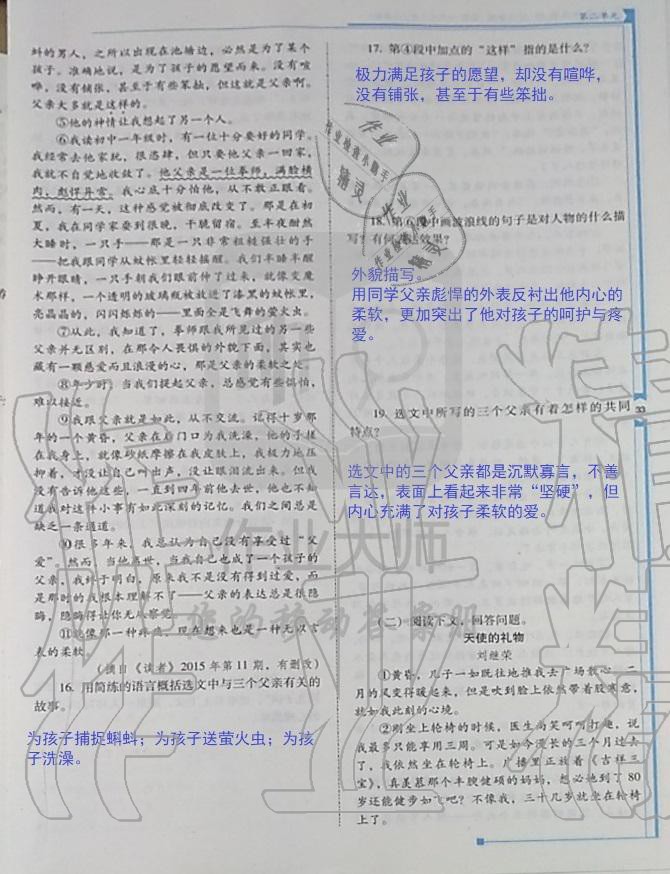 第二单元
蚪的男人，之所以出现在池塘边，必然是为了某个
孩子。准确地说，是为了孩子的愿望而来。没有喧
哗，没有铺张，甚至于有些笨拙，但这就是父亲啊。
父亲大多就是这样的。
⑤他的神情让我想起了另一个人。
⑥我读初中一年级时，有一位十分要好的同学。
我经常去他家玩，很恣肆，但只要他父亲一回家，
我就不自觉地收敛了。他父亲是一位拳师，满脸横
肉，彪悍异常。我心底十分怕他，从不敢正眼看。
然而，有一天，这种感觉被彻底改变了。那是在初
夏，我在同学家耍到很晚，干脆留宿。至半夜酣然
大睡时，一只手——那是一只非常粗糙强壮的手
——把我跟同学从蚊帐里轻轻摇醒。我们半睡半醒
睁开眼睛，一只手朝我们眼前伸了过来，就像变魔
术那样，一个透明的玻璃瓶被放进了漆黑的蚊帐里，
亮晶晶的，闪闪烁烁的——里面全是飞舞的萤火虫。
⑦从此，我知道了，拳师跟我所见过的另一些
父亲并无区别，在那令人畏惧的外貌下面，其实也
藏有一颗慈爱而且浪漫的心，那是父亲的柔软之处。
⑧年少时，当我们提起父亲，总感觉有些惧怕，
难以接近。
⑨我跟父亲就是如此，从不交流。记得十岁那
年的一个黄昏，父亲在后门口为我洗澡，他的手搓
在我身上，就像砂纸摩擦在我皮肤上，我极力地压
抑着，才没让自己叫出声，没让眼泪流出来。但我
没有告诉他这些，一直到四年前他去世，他也不知
道我对这件小事有如此深刻的记忆。我们之间总是
缺乏一条通道。
⑩很多年来，我总认为自己没有享受过“父
爱”。然而，当他离世，当我自己也成了一个孩子的
父亲，我终于明白，原来我不是没有得到过爱，而
是那时的我根本理解不了——父亲的表达总是很隐
晦，隐晦得让你无从察觉。
⑪就像那一种疼痛，现在想来也是一种无以言
表的柔软。
（摘自《读者》2015 年第 11 期，有删改）
16. 用简练的语言概括选文中与三个父亲有关的
故事。
为孩子捕捉蝌蚪；为孩子送萤火虫；为孩
子洗澡。
17. 第④段中加点的“这样”指的是什么？
极力满足孩子的愿望，却没有喧哗，
没有铺张，甚至于有些笨拙。
18. 第⑥段中画波浪线的句子是对人物的什么描
写？有何表达效果？
外貌描写。
用同学父亲彪悍的外表反衬出他内心的
柔软，更加突出了他对孩子的呵护与疼
爱。
33
19. 选文中所写的三个父亲有着怎样的共同
特点？
选文中的三个父亲都是沉默寡言，不善
言达，表面上看起来非常“坚硬”，但
内心充满了对孩子柔软的爱。
（二）阅读下文，回答问题。
天使的礼物
刘继荣
①黄昏，儿子一如既往地推我去广场散心。二
月的风变得暖起来，但是吹到脸上依然带着股寒意，
就如我此刻的心境。
②刚坐上轮椅的时候，医生尚笑呵呵打趣，说
我最多只能享用三周。可是如今漫长的三个月过去
了，我依然坐在轮椅上。广播里正放着《吉祥三
宝》，真羡慕那个丰腴健硕的妈妈，想必她到了 80
岁还能健步如飞吧？不像我，三十几岁就坐在轮椅
上了。
作业
作业检查小助手
精灵
作业大师